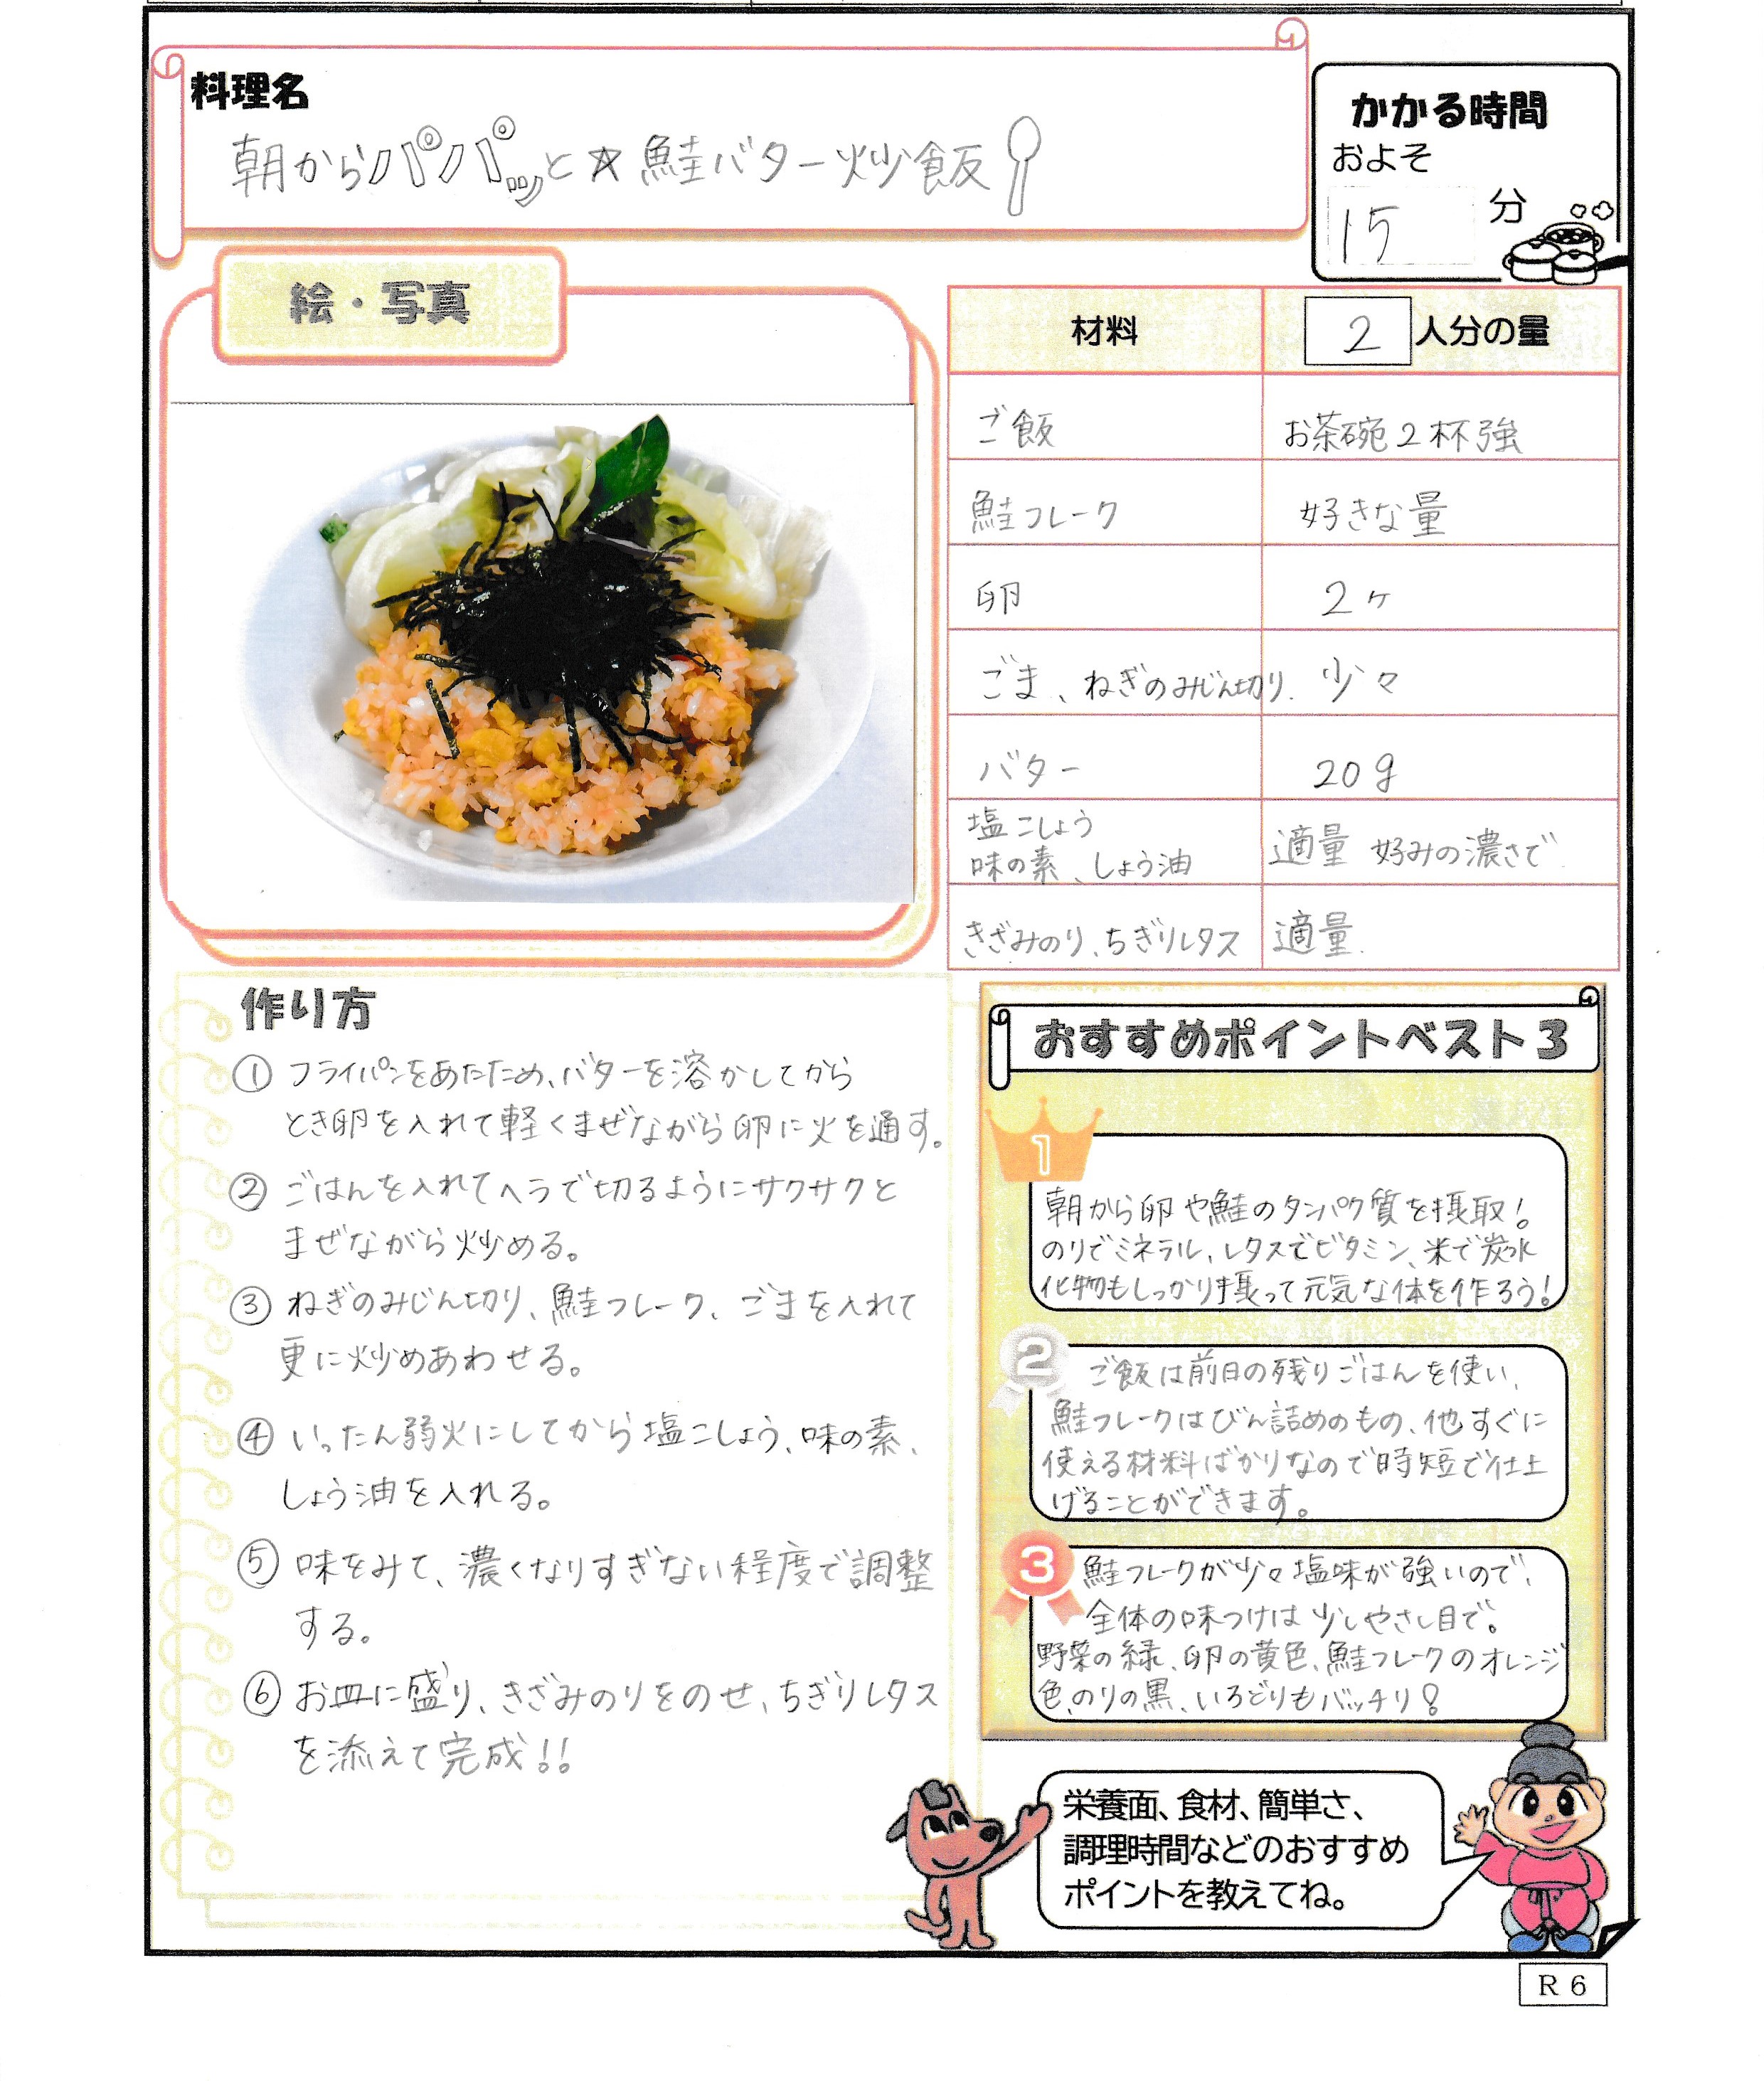 料理名
朝からパパッと☆鮭バター炒飯
かかる時間
およそ
15 分
絵・写真
材料 2 人分の量
ご飯 お茶碗2杯強
鮭フレーク 好きな量
卵 2ヶ
ごま、ねぎのみじん切り. 少々
バター 20g
塩こしょう
味の素、しょう油 適量 好みの濃さで
きざみのり、ちぎりレタス 適量.
作り方
① フライパンをあたため、バターを溶かしてから
とき卵を入れて軽くまぜながら卵に火を通す。
② ごはんを入れてヘラで切るようにサクサクと
まぜながら炒める。
③ ねぎのみじん切り、鮭フレーク、ごまを入れて
更に炒めあわせる。
④ いったん弱火にしてから塩こしょう、味の素、
しょう油を入れる。
⑤ 味をみて、濃くなりすぎない程度で調整
する。
⑥ お皿に盛り、きざみのりをのせ、ちぎりレタス
を添えて完成!!
おすすめポイントベスト3
1
朝から卵や鮭のタンパク質を摂取!
のりでミネラル、レタスでビタミン、米で炭水
化物もしっかり摂って元気な体を作ろう!
2
ご飯は前日の残りごはんを使い、
鮭フレークはびん詰めのもの、他すぐに
使える材料ばかりなので時短で仕上
げることができます。
3
鮭フレークが少々塩味が強いので、
全体の味つけは少しやさし目で。
野菜の緑、卵の黄色、鮭フレークのオレンジ
色、のりの黒、いろどりもバッチリ!
栄養面、食材、簡単さ、
調理時間などのおすすめ
ポイントを教えてね。
R6